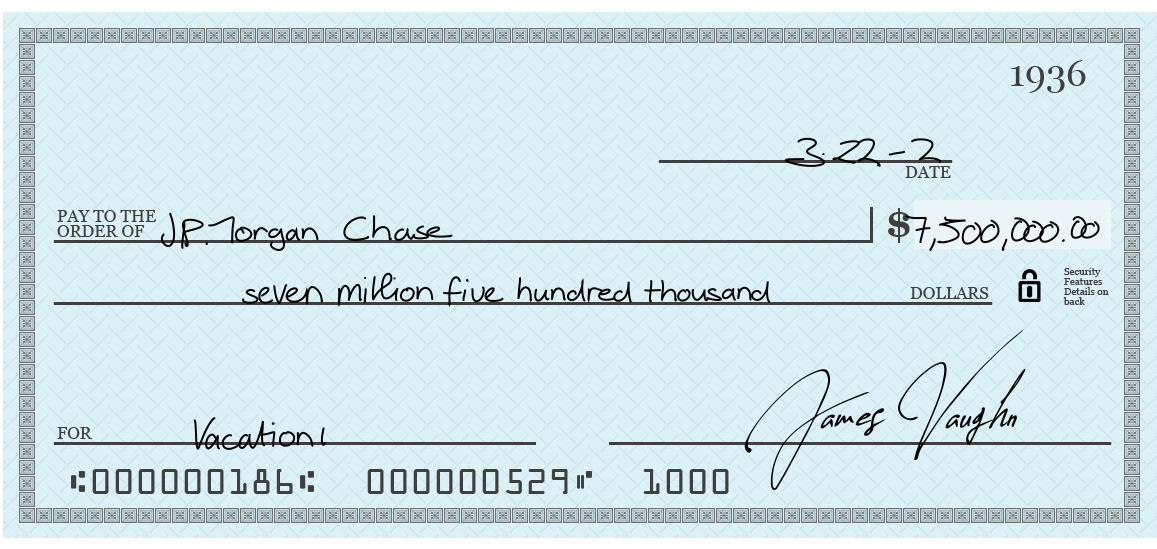 1936
3.22-2
DATE
PAY TO THE
ORDER OF J.P. Morgan Chase $7,500,000.00
seven million five hundred thousand DOLLARS
Security
Features
Details on
back
James Vaughn
FOR Vacation!
⑆000000186⑆ 000000529⑈ 1000